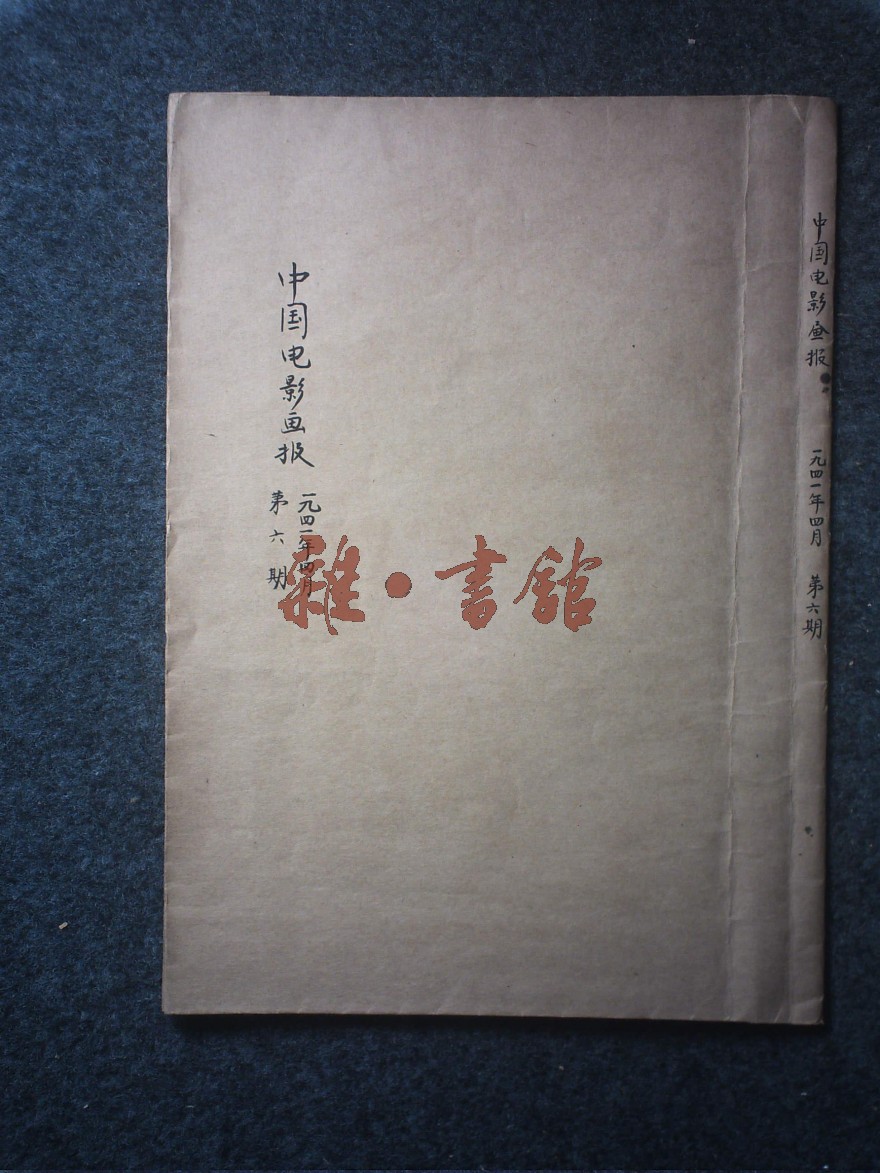 中国电影画报
一九四一年四月
第六期
雜·書館
中国电影画报
一九四一年四月
第六期